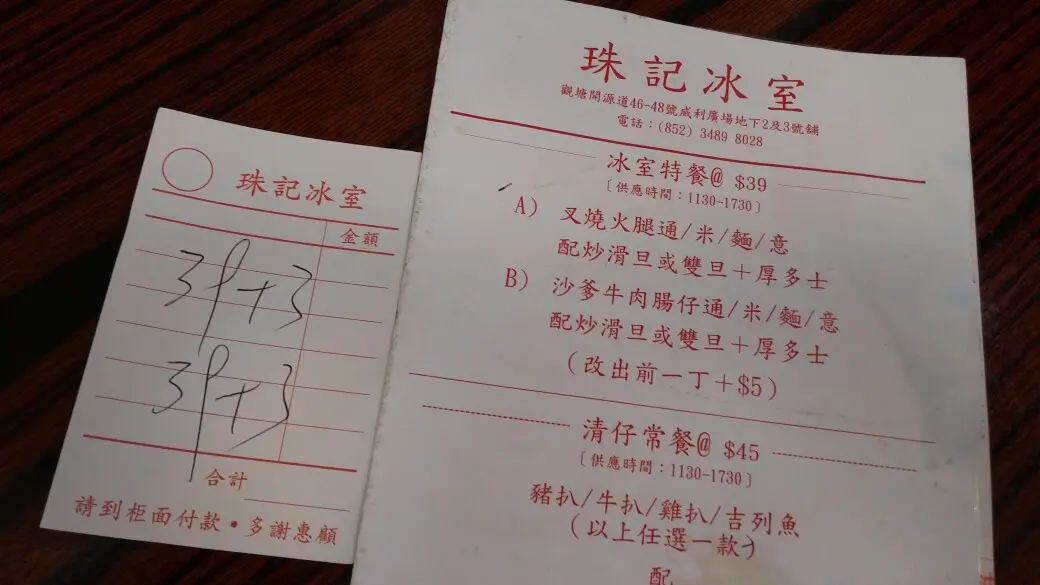 珠記冰室
金額
39+3
39+3
合計
請到柜面付款·多謝惠顧
珠記冰室
觀塘開源道46-48號威利廣場地下2及3號舖
電話：(852) 3489 8028
冰室特餐@ $39
〔供應時間：1130-1730〕
A) 叉燒火腿通/米/麵/意
配炒滑旦或雙旦＋厚多士
B) 沙爹牛肉腸仔通/米/麵/意
配炒滑旦或雙旦＋厚多士
(改出前一丁＋$5)
清仔常餐@ $45
〔供應時間：1130-1730〕
豬扒/牛扒/雞扒/吉列魚
(以上任選一款)
配